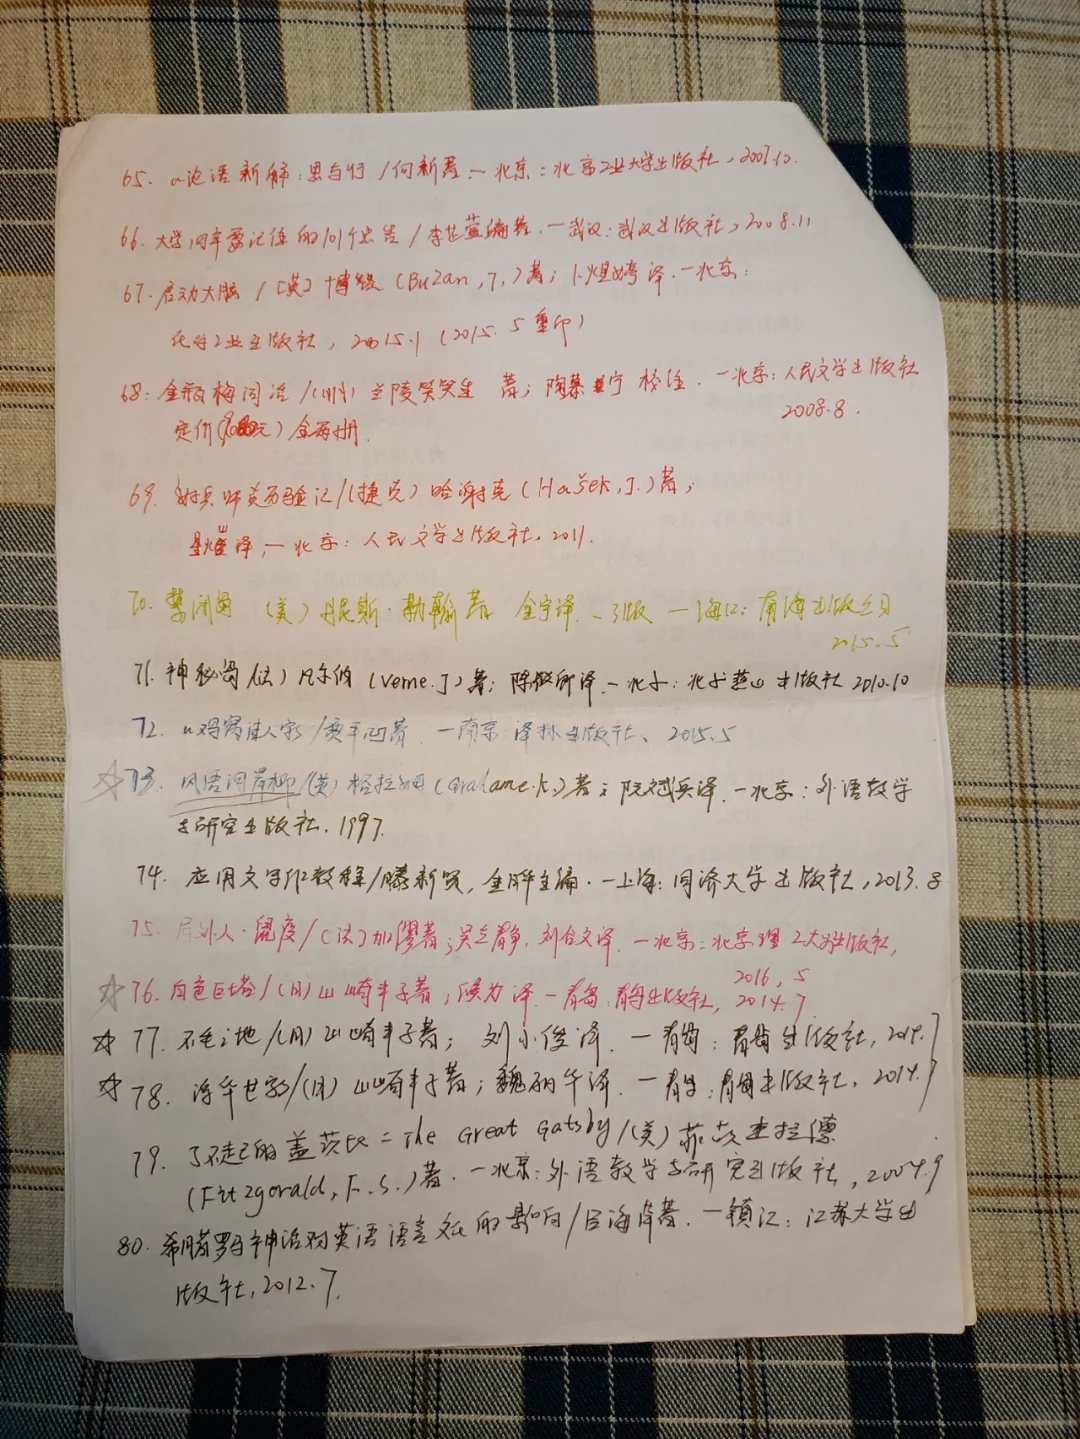 65. 论语新解：思与行/何新著.—北京：北京工业大学出版社，2007.10.
66. 大学四年要记住的101个忠告/李芷萱编著.—武汉：武汉出版社，2008.11
67. 启动大脑/[英]博赞(Buzan, T.)著；卜煜婷译.—北京：
化学工业出版社，2015.1(2015.5重印)
68. 金瓶梅词话/(明)兰陵笑笑生 著；陶慕宁校注.—北京：人民文学出版社
2008.8.
定价 全两册.
69. 好兵帅克历险记/(捷克)哈谢克(Hašek, J.)著；
星灿译，—北京：人民文学出版社，2011.
70. 禁闭岛 (美)丹尼斯·勒翰著 金宇译.—3版—海口：南海出版公司
2015.5
71. 神秘岛(法)凡尔纳(Verne.J)著；陈筱卿译.—北京：北京燕山出版社 2010.10
72. 鸡窝洼人家/贾平凹著.—南京：译林出版社、2015.5
☆73. 风语河岸柳/(英)格拉姆(Grahame.k.)著；阮斌兵译.—北京：外语教学
与研究出版社. 1997.
74. 应用文写作教程/滕新贤,金胜主编.—上海：同济大学出版社,2013.8
75. 局外人·鼠疫/(法)加缪著；吴立静,刘合文译.—北京：北京理工大学出版社,
2016.5
☆76. 白色巨塔/(日)山崎丰子著；侯为译.—青岛：青岛出版社，2014.7.
☆77. 不毛之地/(日)山崎丰子著；刘小俊译.—青岛：青岛出版社，2014.7
☆78. 浮华世家/(日)山崎丰子著；魏丽华译.—青岛：青岛出版社，2014.7
79. 了不起的盖茨比=The Great Gatsby/(美)菲茨杰拉德
(Fitzgorald, F.S.)著.—北京：外语教学与研究出版社，2004.9
80. 希腊罗马神话对英语语言文化的影响/ 海 著.—镇江：江苏大学出
版社,2012.7.